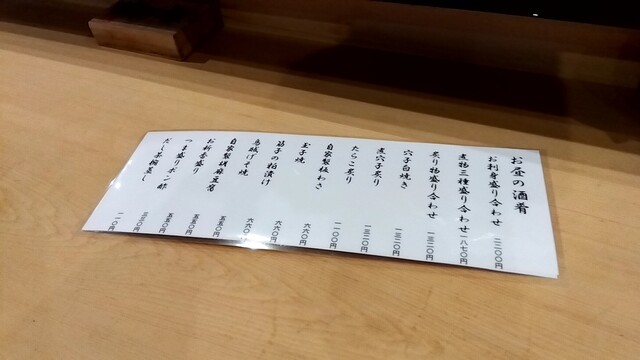 お昼の酒肴
お刺身盛り合わせ 二二〇〇円
煮物三種盛り合わせ 一八七〇円
炙り物盛り合わせ 一三二〇円
穴子白焼き 一三二〇円
煮穴子炙り 一三二〇円
たらこ炙り 一一〇〇円
自家製板わさ
玉子焼 六六〇円
筋子の粕漬け 六六〇円
烏賊げそ焼 六六〇円
自家製胡麻豆腐 五五〇円
お新香盛り 五五〇円
つま盛りポン酢 五五〇円
だし茶椀蒸し